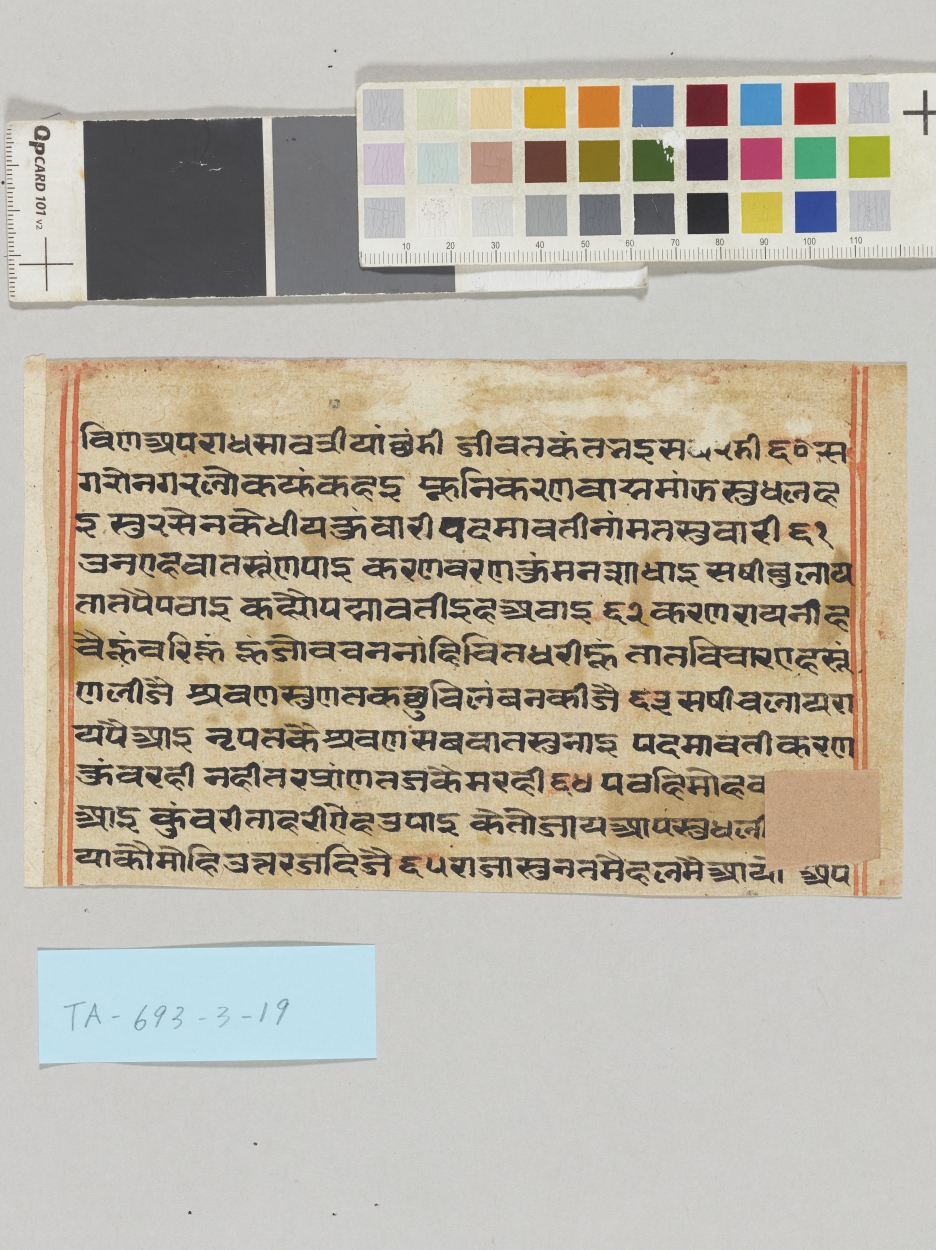 OpCARD 101 v2
10 20 30 40 50 60 70 80 90 100 110
विण अपराध सावत्रीयां छंमी जीवत कंत नइ ६० स
गरोनगरनौ कहुं कहइ फूलनि करण वास्नमांऊ सुधलह
इ सुरसेन के धीय कुंवारी पदमावती नांम तसु वारी ६१
उनण्हवात सूंणपाइ करण वरण कुंमन आधाइ सषी बुलाय
तात पै पठाइ कह्यौ पद्मावती इह अवाइ ६२ करण राय नी ह
चैकुंवरिकुं जो वचन नांहि चित धरीहुं तात विचारण
ण लीजै श्रवण सुणत कछु विलंब न कीजै ६३ सषी चलाय रा
य पै आइ नृपत कै श्रवण सब बात सुनाइ पदमावती करण
कुंवर ही नही तर प्रांण तज कै मरही ६४ पवहि मोह व
आइ कुंवरी ताहरी उपाइ केतौ जाय आप सुध ली
या कौ मोहि उत्तर ज दिजै ६५ राजा सुनत मैहल मै आया अप
TA-693-3-19